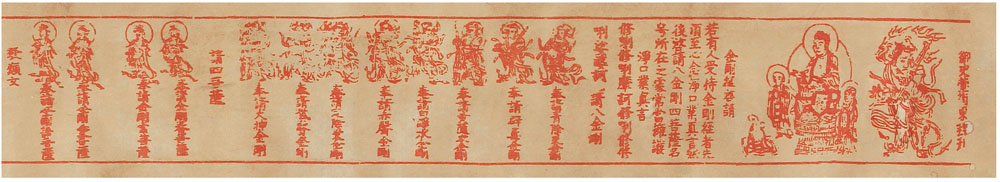 金剛經啓請
若有人受持金剛經者先
須至心念淨口業真言然
後啓請八金剛四菩薩名
号所在之處常當擁護
淨口業真言
修利修利摩訶修利修修
利娑婆訶 請八金剛
奉請青除災金剛
奉請辟毒金剛
奉請黃隨求金剛
奉請白淨水金剛
奉請赤聲金剛
奉請定除災金剛
奉請紫賢金剛
奉請大神金剛
請四菩薩
奉請金剛眷菩薩
奉請金剛索菩薩
奉請金剛愛菩薩
奉請金剛語菩薩
發願文